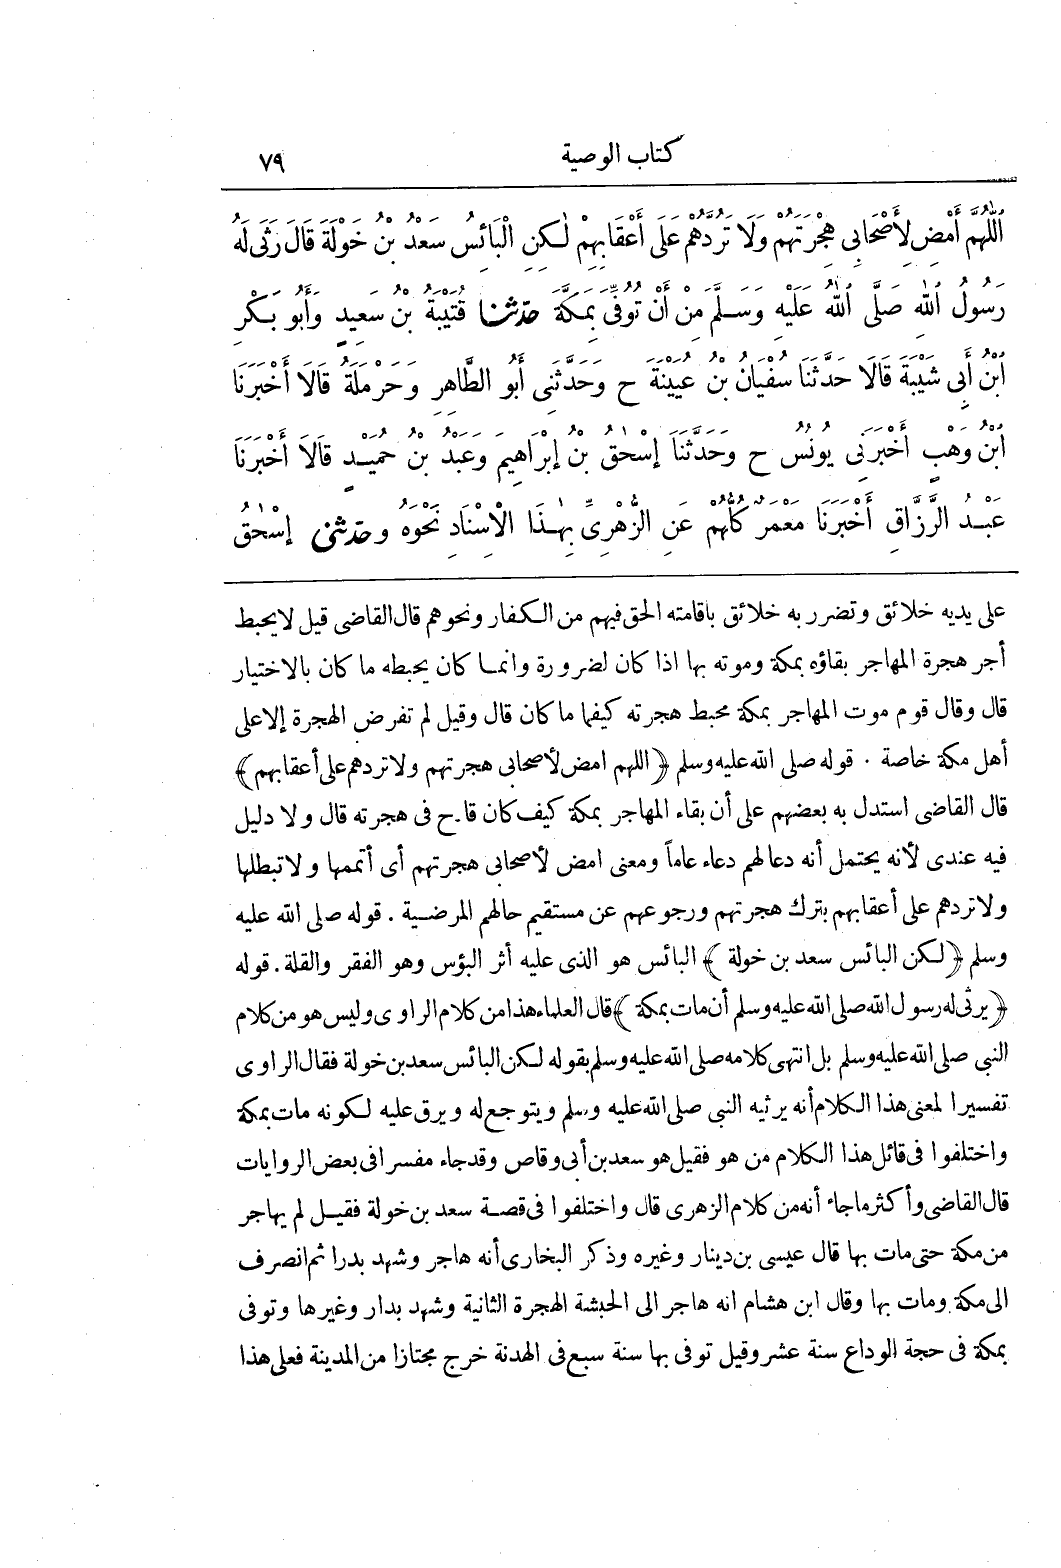 كتاب الوصية ٧٩
اللّٰهُمَّ أَمْضِ لِأَصْحَابِي هِجْرَتَهُمْ وَلَا تَرُدَّهُمْ عَلَى أَعْقَابِهِمْ لٰكِنِ الْبَائِسُ سَعْدُ بْنُ خَوْلَةَ قَالَ رَثَى لَهُ
رَسُولُ اللّٰهِ صَلَّى اللّٰهُ عَلَيْهِ وَسَلَّمَ مِنْ أَنْ تُوُفِّيَ بِمَكَّةَ حدثنا قُتَيْبَةُ بْنُ سَعِيدٍ وَأَبُو بَكْرِ
ابْنُ أَبِي شَيْبَةَ قَالَا حَدَّثَنَا سُفْيَانُ بْنُ عُيَيْنَةَ ح وَحَدَّثَنِي أَبُو الطَّاهِرِ وَحَرْمَلَةُ قَالَا أَخْبَرَنَا
ابْنُ وَهْبٍ أَخْبَرَنِي يُونُسُ ح وَحَدَّثَنَا إِسْحٰقُ بْنُ إِبْرَاهِيمَ وَعَبْدُ بْنُ حُمَيْدٍ قَالَا أَخْبَرَنَا
عَبْدُ الرَّزَّاقِ أَخْبَرَنَا مَعْمَرٌ كُلُّهُمْ عَنِ الزُّهْرِيِّ بِهٰذَا الْإِسْنَادِ نَحْوَهُ وحدثني إِسْحٰقُ
على يديه خلائق وتضرر به خلائق باقامته الحق فيهم من الكفار ونحوهم قال القاضى قيل لا يحبط
أجر هجرة المهاجر بقاؤه بمكة وموته بها اذا كان لضرورة وانما كان يحبطه ما كان بالاختيار
قال وقال قوم موت المهاجر بمكة محبط هجرته كيفما ما كان قال وقيل لم تفرض الهجرة إلا على
أهل مكة خاصة . قوله صلى الله عليه وسلم ﴿اللهم امض لأصحابى هجرتهم ولا تردهم على أعقابهم﴾
قال القاضى استدل به بعضهم على أن بقاء المهاجر بمكة كيف كان قادح فى هجرته قال ولا دليل
فيه عندى لأنه يحتمل أنه دعا لهم دعاء عاماً ومعنى امض لأصحابى هجرتهم أى أتممها ولا تبطلها
ولا تردهم على أعقابهم بترك هجرتهم ورجوعهم عن مستقيم حالهم المرضية . قوله صلى الله عليه
وسلم ﴿لكن البائس سعد بن خولة﴾ البائس هو الذى عليه أثر البؤس وهو الفقر والقلة . قوله
﴿يرثى له رسول الله صلى الله عليه وسلم أن مات بمكة﴾ قال العلماء هذا من كلام الراوى وليس هو من كلام
النبى صلى الله عليه وسلم بل انتهى كلامه صلى الله عليه وسلم بقوله لكن البائس سعد بن خولة فقال الراوى
تفسيرا لمعنى هذا الكلام أنه يرثيه النبى صلى الله عليه وسلم ويتوجع له ويرق عليه لكونه مات بمكة
واختلفوا فى قائل هذا الكلام من هو فقيل هو سعد بن أبى وقاص وقد جاء مفسرا فى بعض الروايات
قال القاضى وأكثر ما جاء أنه من كلام الزهرى قال واختلفوا فى قصة سعد بن خولة فقيل لم يهاجر
من مكة حتى مات بها قال عيسى بن دينار وغيره وذكر البخارى أنه هاجر وشهد بدرا ثم انصرف
الى مكة ومات بها وقال ابن هشام انه هاجر الى الحبشة الهجرة الثانية وشهد بدار وغيرها وتوفى
بمكة فى حجة الوداع سنة عشر وقيل توفى بها سنة سبع فى الهدنة خرج مجتازا من المدينة فعلى هذا